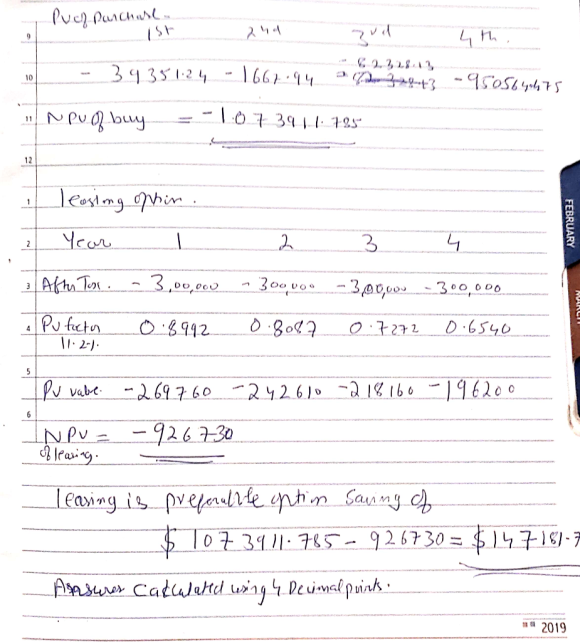 PV of purchase -
1st 2nd 3rd 4th.
- 82328.13
- 39351.24 - 1662.94 - 950564.475
NPV of buy = -1073911.785
leasing option.
Year 1 2 3 4
After Tax. - 3,00,000 - 300,000 - 3,00,000 - 300,000
PV factor 0.8992 0.8087 0.7272 0.6540
11.2%
PV value. -269760 -242610 -218160 -196200
NPV = -926730
of leasing.
leasing is preferable option saving of
$ 1073911.785 - 926730 = $147181.7
Answer Calculated using 4 Decimal points.
FEBRUARY
MARCH
2019
9
10
11
12
1
2
3
4
5
6